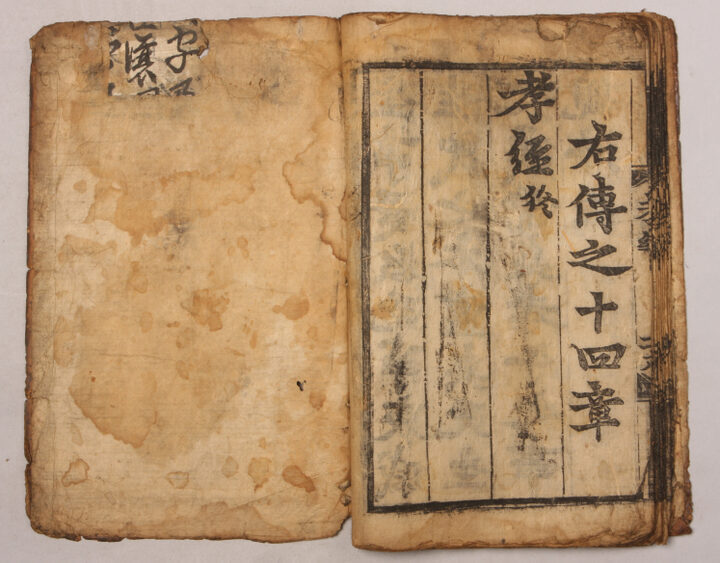 右傳之十四章
孝經終
孝經